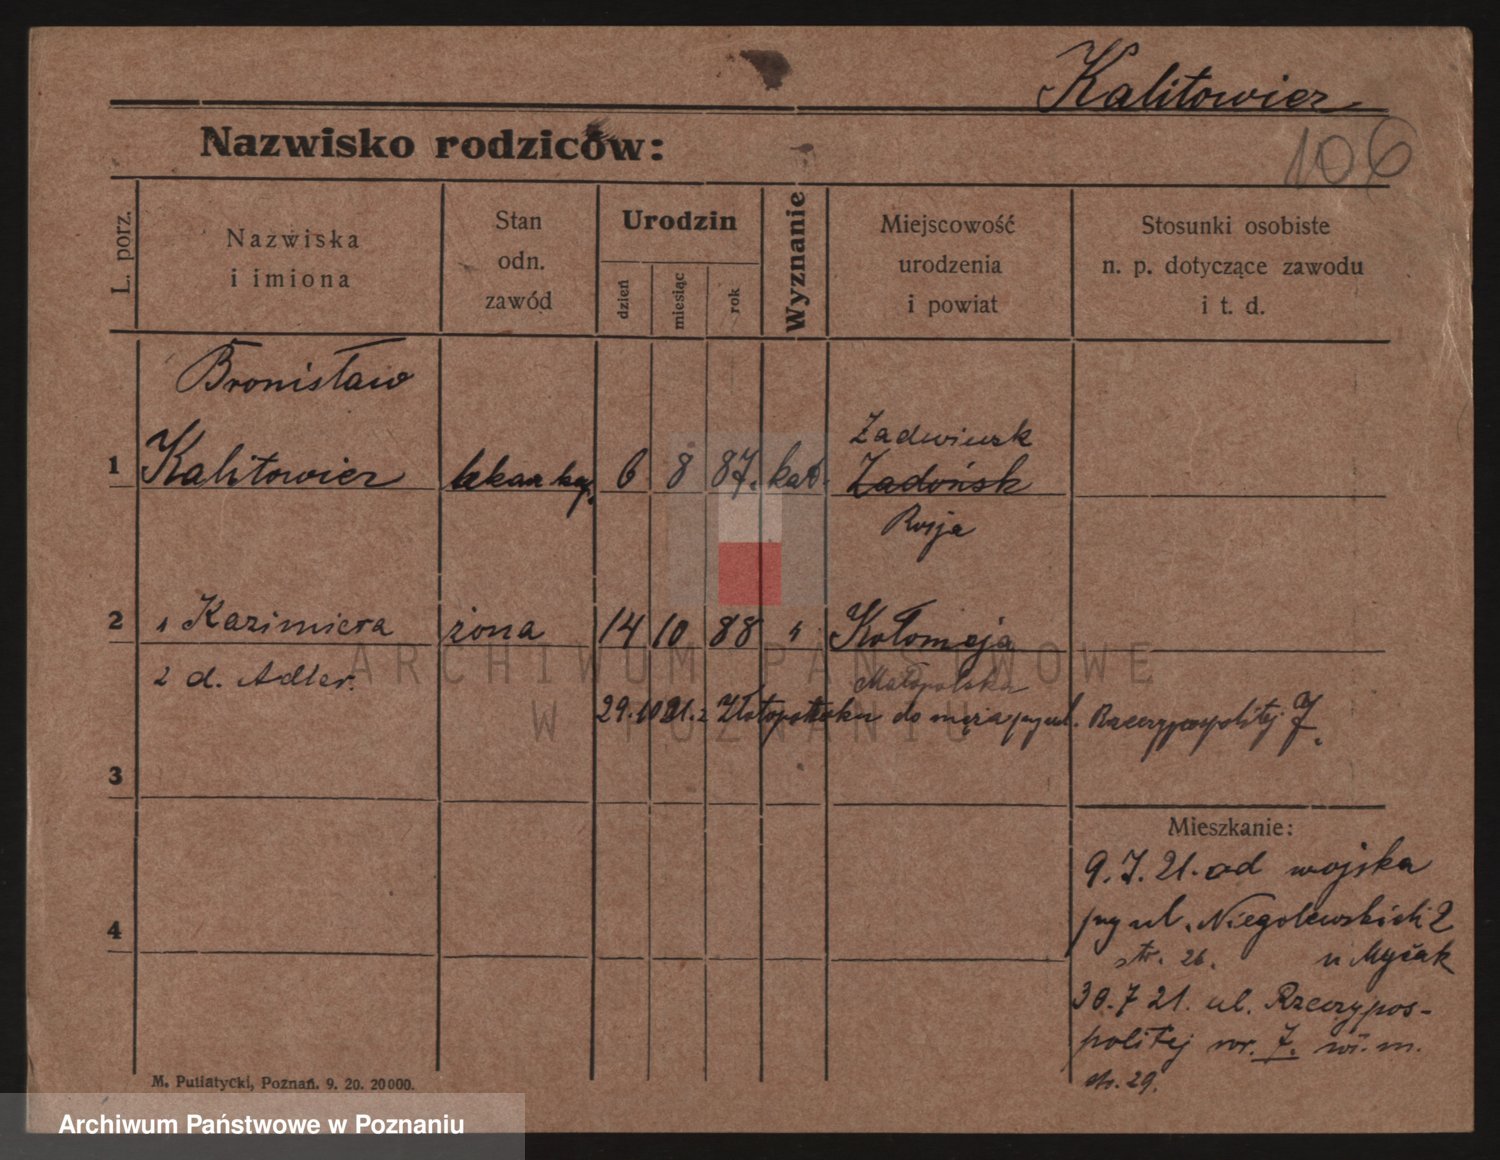 Kalitowicz
106
Nazwisko rodziców:
L. porz.
Nazwiska
i imiona
Stan
odn.
zawód
Urodzin
dzień
miesiąc
rok
Wyznanie
Miejscowość
urodzenia
i powiat
Stosunki osobiste
n. p. dotyczące zawodu
i t. d.
Bronisław
1 Kalitowicz lekarz kap. 6 8 87. kat. Zadwińsk
Zadońsk
Rosja
2 " Kazimiera żona 14 10 88 " Kołomeja
z d. Adler. Małopolska
29.10 21. z do męża przy ul. Rzeczypospolitej 7.
3
Mieszkanie:
9.7.21. od wojska
przy ul. Niegolewskich 2
str. 26. u Myśak
4
30.7 21. ul. Rzeczypos-
politej nr. 7. m.
str. 29.
M. Putiatycki, Poznań. 9. 20. 20000.
ARCHIWUM PAŃSTWOWE
W POZNANIU
Archiwum Państwowe w Poznaniu